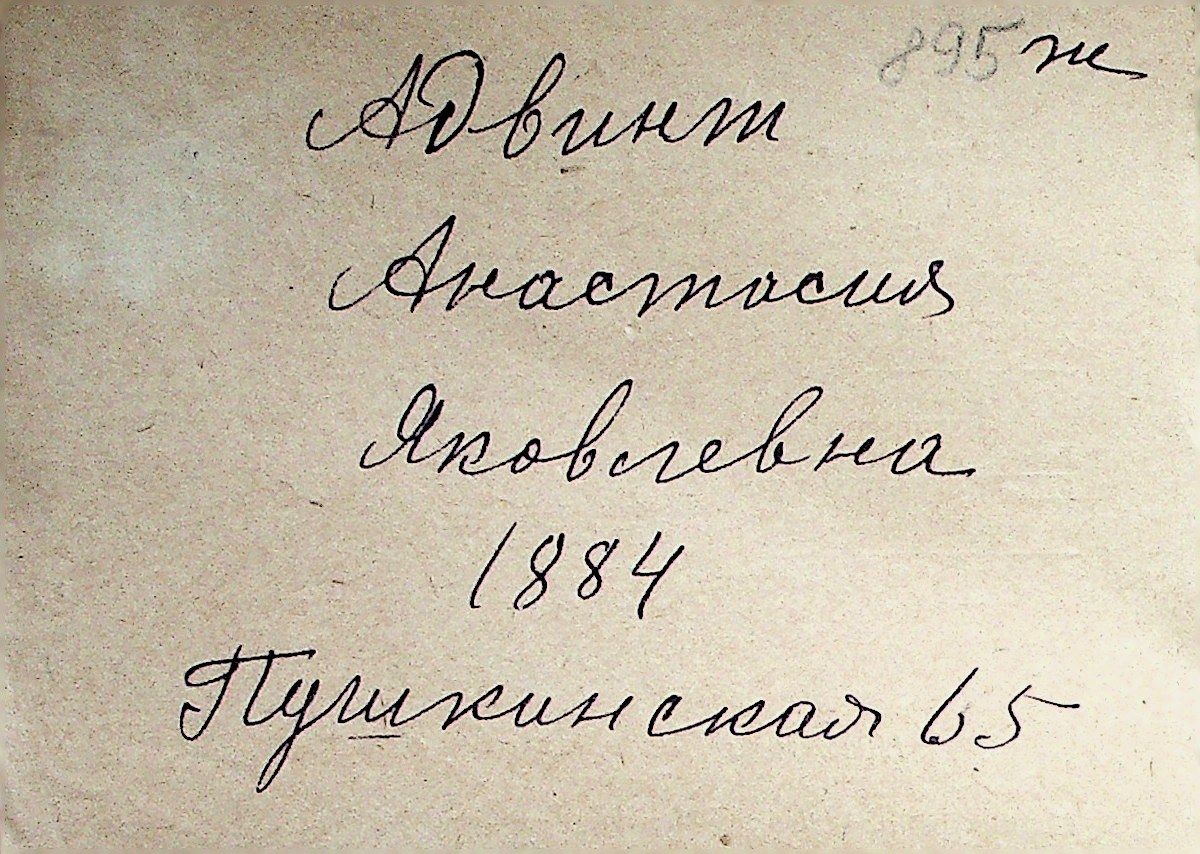 895 ж
Адвинт
Анастасия
Яковлевна
1884
Пушкинская 65